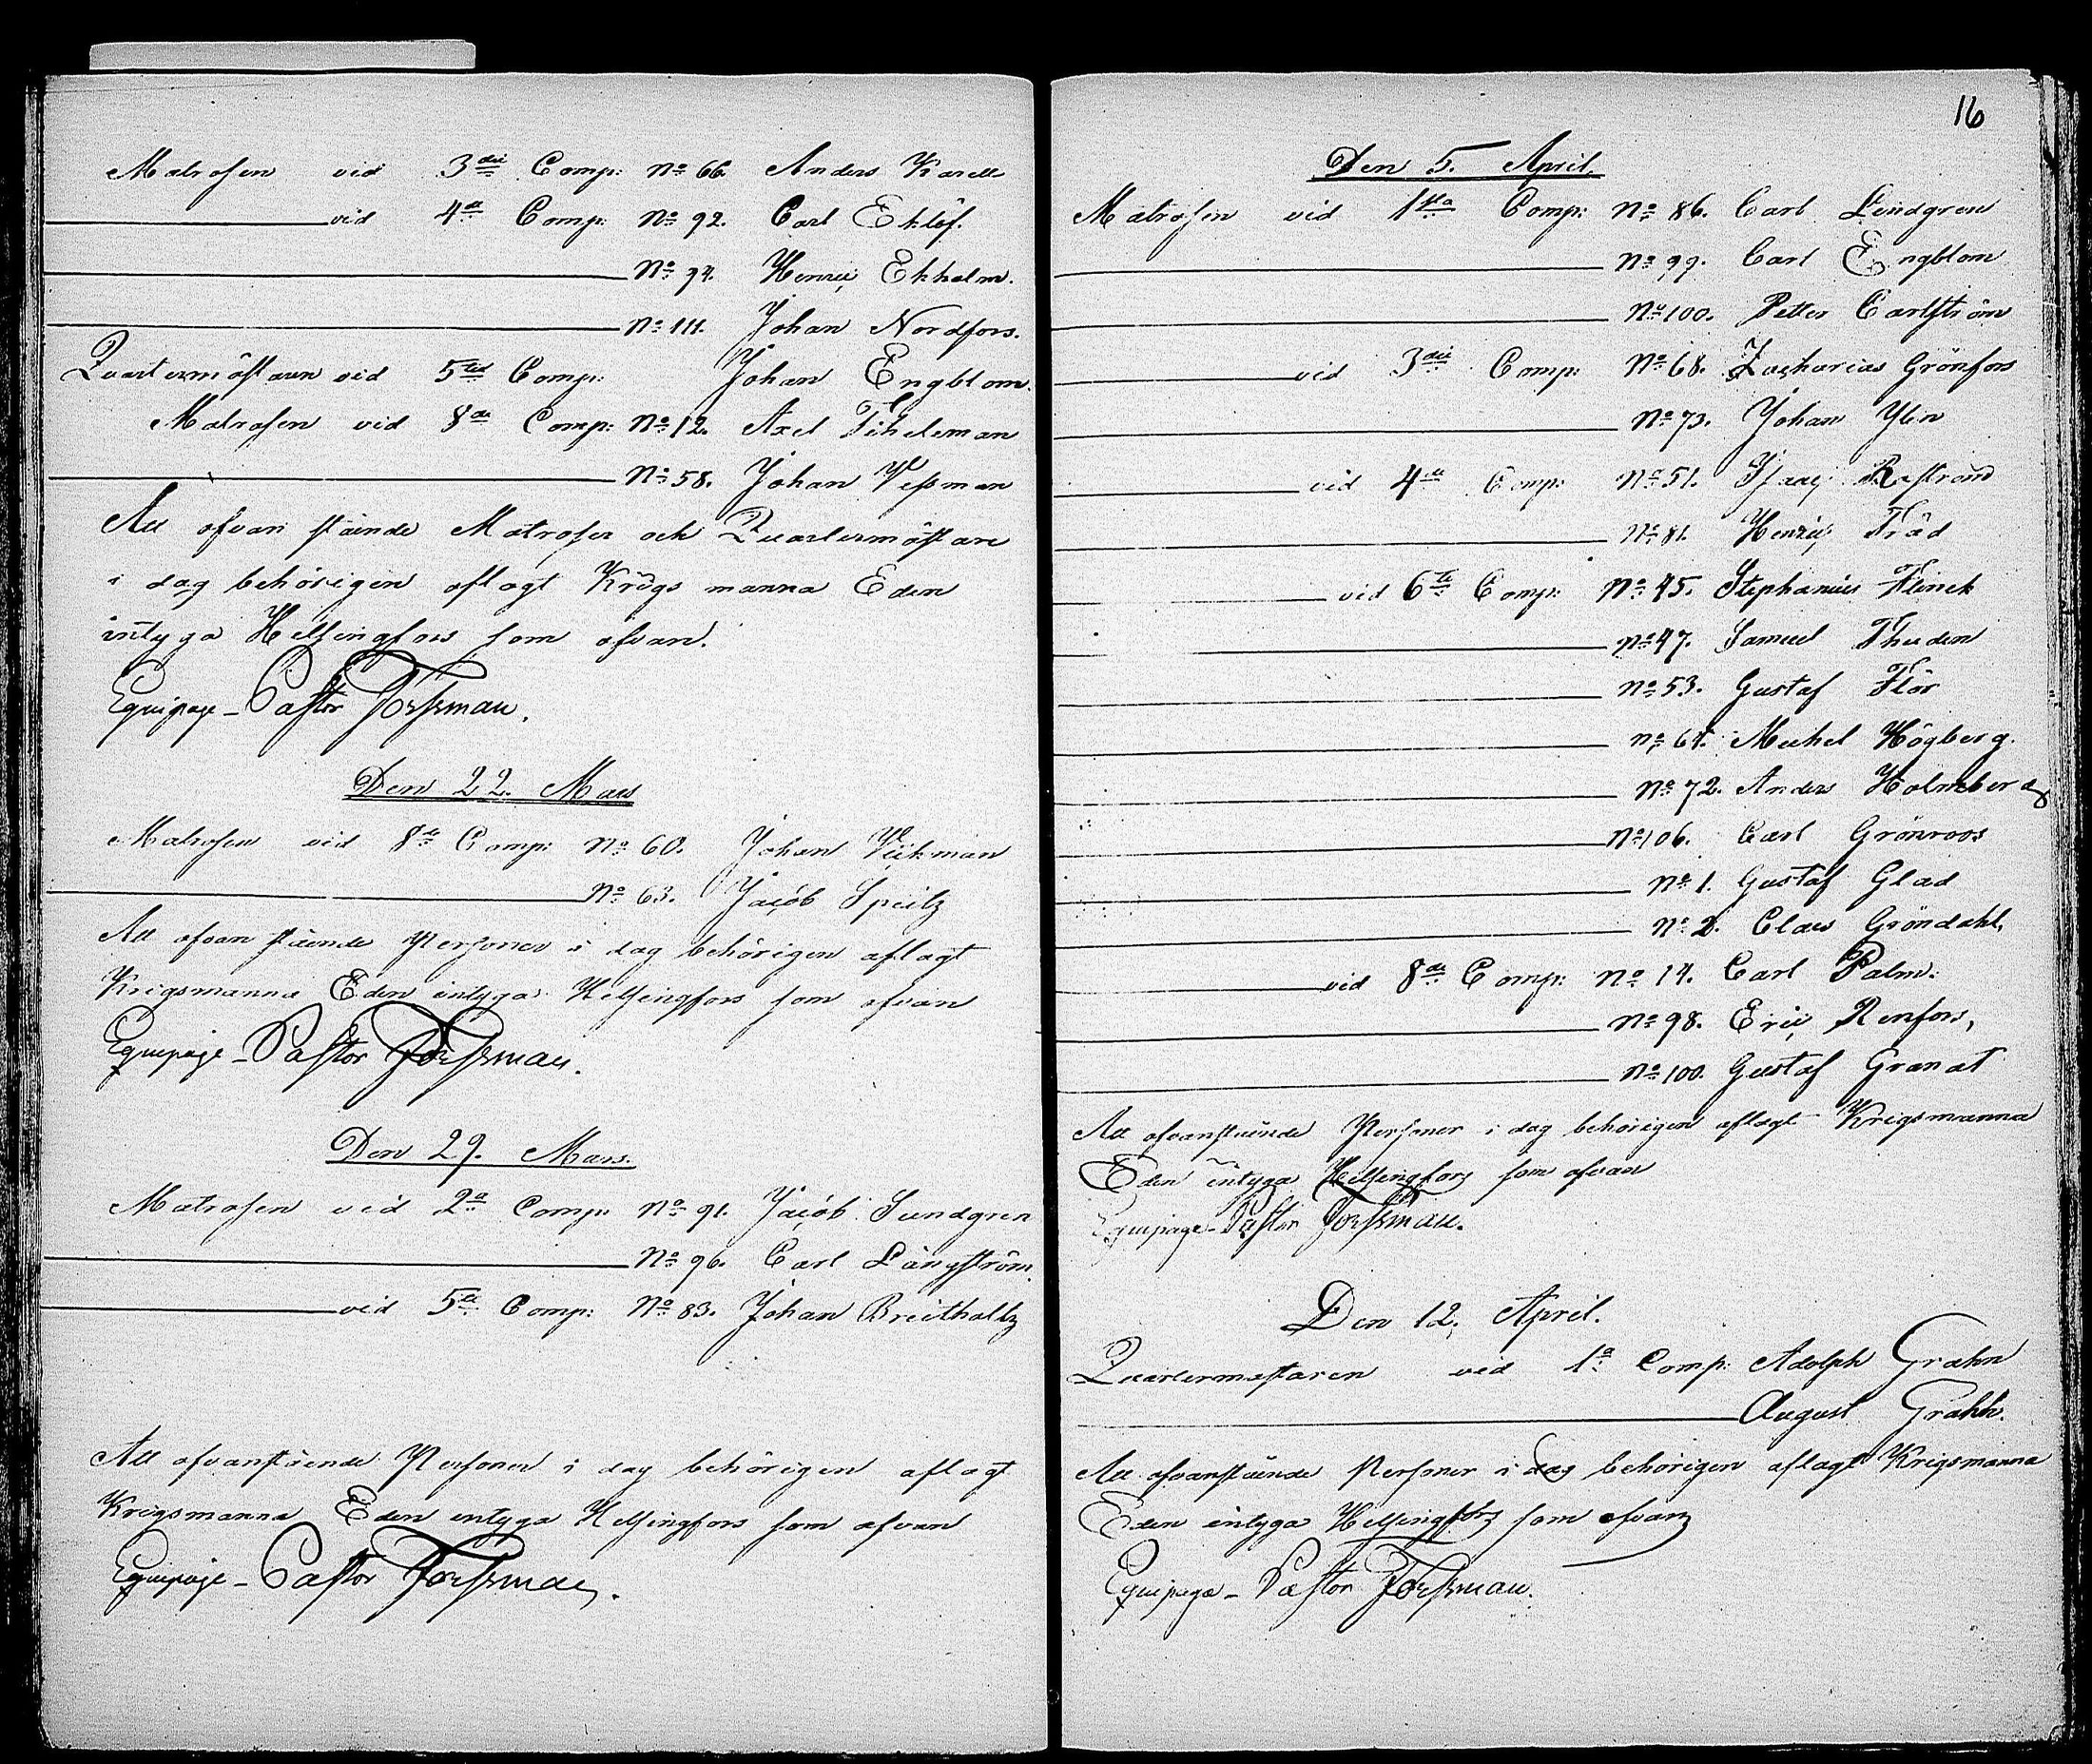 Matrosen vid 3die Comp: No 66. Anders Karell
vid 4de Comp: No 92. Carl Eklöf.
No 94. Henric Ekholm.
No 111. Johan Nordfors.
Quartermästaren vid 5te Comp: Johan Engblom.
Matrosen vid 8de Comp: No 12. Axel Tihleman
No 58. Johan Vessman
Att ofvan stående Matroser och Quartermästare
i dag behörigen aflagt Krigs manna Eden
intyga Helsingfors som ofvan.
Equipage-Pastor Forssman.
Den 22. Mars
Matrosen vid 8de Comp: No 60. Johan Vickman
No 63. Jacob Speitz
Att ofvan stående Personer i dag behörigen aflagt
Krigsmanna Eden intyga Helsingfors som ofvan
Equipage-Pastor Forssman.
Den 29. Mars.
Matrosen vid 2a Comp: No 91. Jacob Sundgren
No 96. Carl Långström.
vid 5te Comp: No 83. Johan Breitholtz
Att ofvanstående Personer i dag behörigen aflagt
Krigsmanna Eden intyga Helsingfors som ofvan
Equipage-Pastor Forssman.
16
Den 5. April.
Matrosen vid 1sta Comp: No 86. Carl Lindgren
No 99. Carl Engblom
No 100. Petter Carlström
vid 3die Comp: No 68. Zacharias Grönfors
No 73. Johan Ylen
vid 4de Comp: No 51. Isaac
No 81. Henric Träd
vid 6te Comp: No 45. Stephanus Flinck
No 47. Samuel Thuden
No 53. Gustaf Flör
No 64. Michel Högberg.
No 72. Anders Holmberg
No 106. Carl Grönroos
No 1. Gustaf Glad
No 2. Claes Gröndahl,
vid 8de Comp: No 14. Carl Palm.
No 98. Eric Renfors,
No 100. Gustaf Granat
Att ofvanstående Personer i dag behörigen aflagt Krigsmanna
Eden intyga Helsingfors som ofvan
Equipage-Pastor Forssman.
Den 12. April.
Quartermestaren vid 1a Comp: Adolph Grahn
August Grahn.
Att ofvanstående Personer i dag behörigen aflagt Krigsmanna
Eden intyga Helsingfors som ofvan
Equipage-Pastor Forssman.